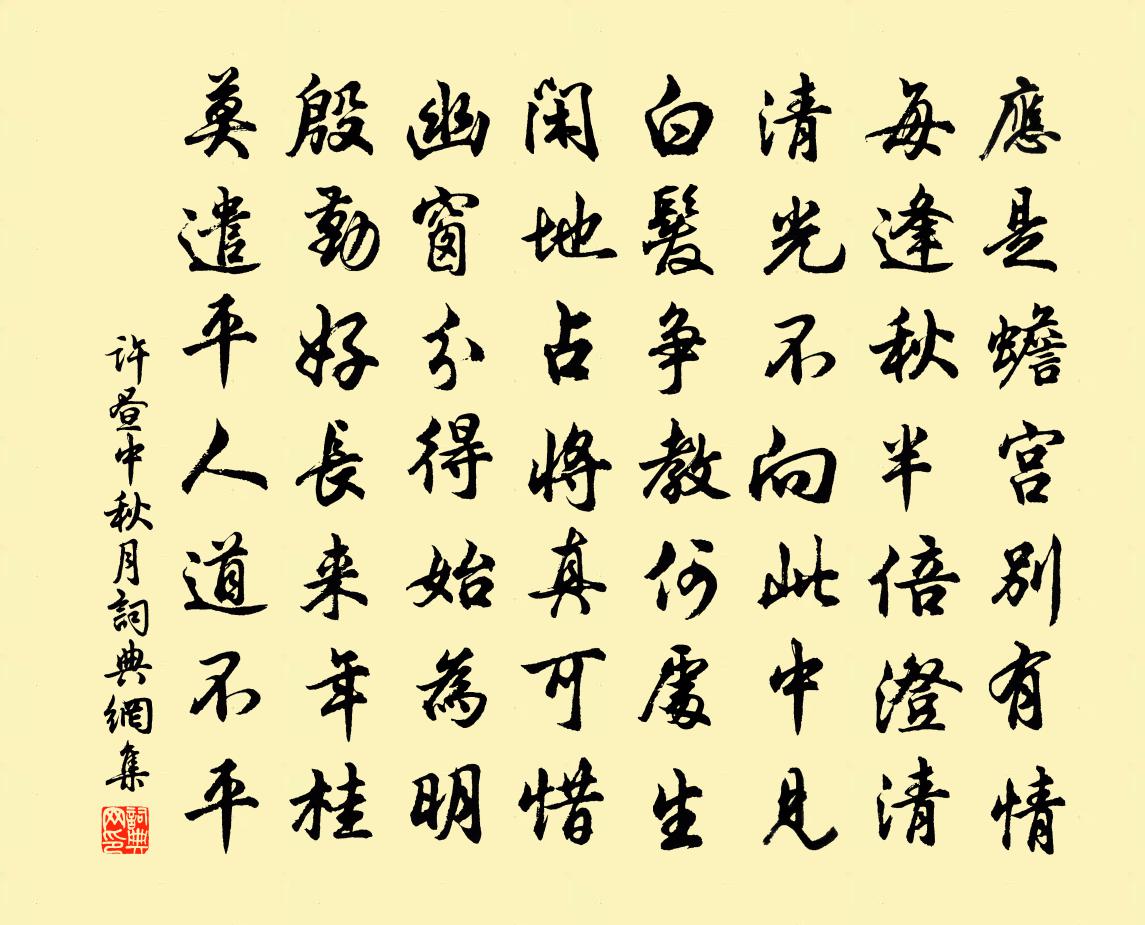 應是蟾宮别有情
每逢秋半倍澄清
清光不向此中見
白髮争教何處生
闲地占將真可惜
幽窗分得始為明
殷勤好長来年桂
莫遣平人道不平
許晝中秋月詞典網集
詞典网印